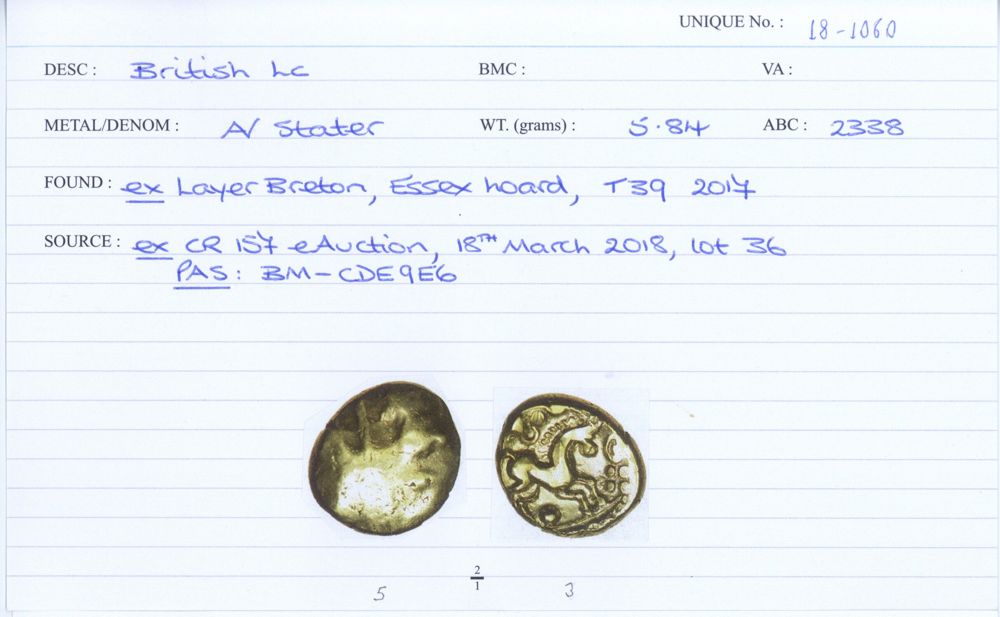 UNIQUE No. : 18-1060
DESC : British Lc BMC : VA :
METAL/DENOM : A/ Stater WT. (grams) : 5.84 ABC : 2338
FOUND : ex Layer Breton, Essex hoard, T39 2017
SOURCE : ex CR 157 eAuction, 18TH March 2018, lot 36
PAS: BM-CDE9E6
2
1
5 3